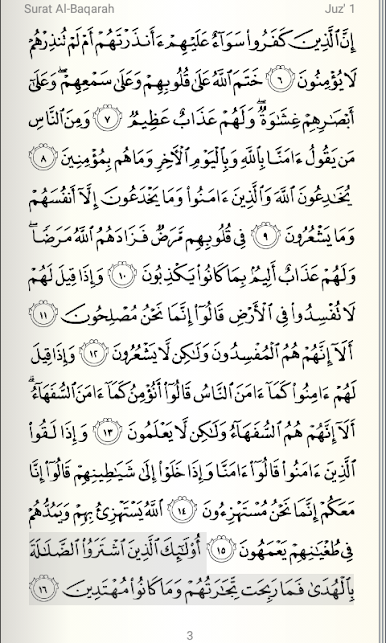 Surat Al-Baqarah Juz' 1
إِنَّ ٱلَّذِينَ كَفَرُوا۟ سَوَآءٌ عَلَيْهِمْ ءَأَنذَرْتَهُمْ أَمْ لَمْ تُنذِرْهُمْ
لَا يُؤْمِنُونَ ٦ خَتَمَ ٱللَّهُ عَلَىٰ قُلُوبِهِمْ وَعَلَىٰ سَمْعِهِمْ ۖ وَعَلَىٰٓ
أَبْصَـٰرِهِمْ غِشَـٰوَةٌ ۖ وَلَهُمْ عَذَابٌ عَظِيمٌ ٧ وَمِنَ ٱلنَّاسِ
مَن يَقُولُ ءَامَنَّا بِٱللَّهِ وَبِٱلْيَوْمِ ٱلْـَٔاخِرِ وَمَا هُم بِمُؤْمِنِينَ ٨
يُخَـٰدِعُونَ ٱللَّهَ وَٱلَّذِينَ ءَامَنُوا۟ وَمَا يَخْدَعُونَ إِلَّآ أَنفُسَهُمْ
وَمَا يَشْعُرُونَ ٩ فِى قُلُوبِهِم مَّرَضٌ فَزَادَهُمُ ٱللَّهُ مَرَضًا ۖ
وَلَهُمْ عَذَابٌ أَلِيمٌۢ بِمَا كَانُوا۟ يَكْذِبُونَ ١٠ وَإِذَا قِيلَ لَهُمْ
لَا تُفْسِدُوا۟ فِى ٱلْأَرْضِ قَالُوٓا۟ إِنَّمَا نَحْنُ مُصْلِحُونَ ١١
أَلَآ إِنَّهُمْ هُمُ ٱلْمُفْسِدُونَ وَلَـٰكِن لَّا يَشْعُرُونَ ١٢ وَإِذَا قِيلَ
لَهُمْ ءَامِنُوا۟ كَمَآ ءَامَنَ ٱلنَّاسُ قَالُوٓا۟ أَنُؤْمِنُ كَمَآ ءَامَنَ ٱلسُّفَهَآءُ ۗ
أَلَآ إِنَّهُمْ هُمُ ٱلسُّفَهَآءُ وَلَـٰكِن لَّا يَعْلَمُونَ ١٣ وَإِذَا لَقُوا۟
ٱلَّذِينَ ءَامَنُوا۟ قَالُوٓا۟ ءَامَنَّا وَإِذَا خَلَوْا۟ إِلَىٰ شَيَـٰطِينِهِمْ قَالُوٓا۟ إِنَّا
مَعَكُمْ إِنَّمَا نَحْنُ مُسْتَهْزِءُونَ ١٤ ٱللَّهُ يَسْتَهْزِئُ بِهِمْ وَيَمُدُّهُمْ
فِى طُغْيَـٰنِهِمْ يَعْمَهُونَ ١٥ أُو۟لَـٰٓئِكَ ٱلَّذِينَ ٱشْتَرَوُا۟ ٱلضَّلَـٰلَةَ
بِٱلْهُدَىٰ فَمَا رَبِحَت تِّجَـٰرَتُهُمْ وَمَا كَانُوا۟ مُهْتَدِينَ ١٦
3